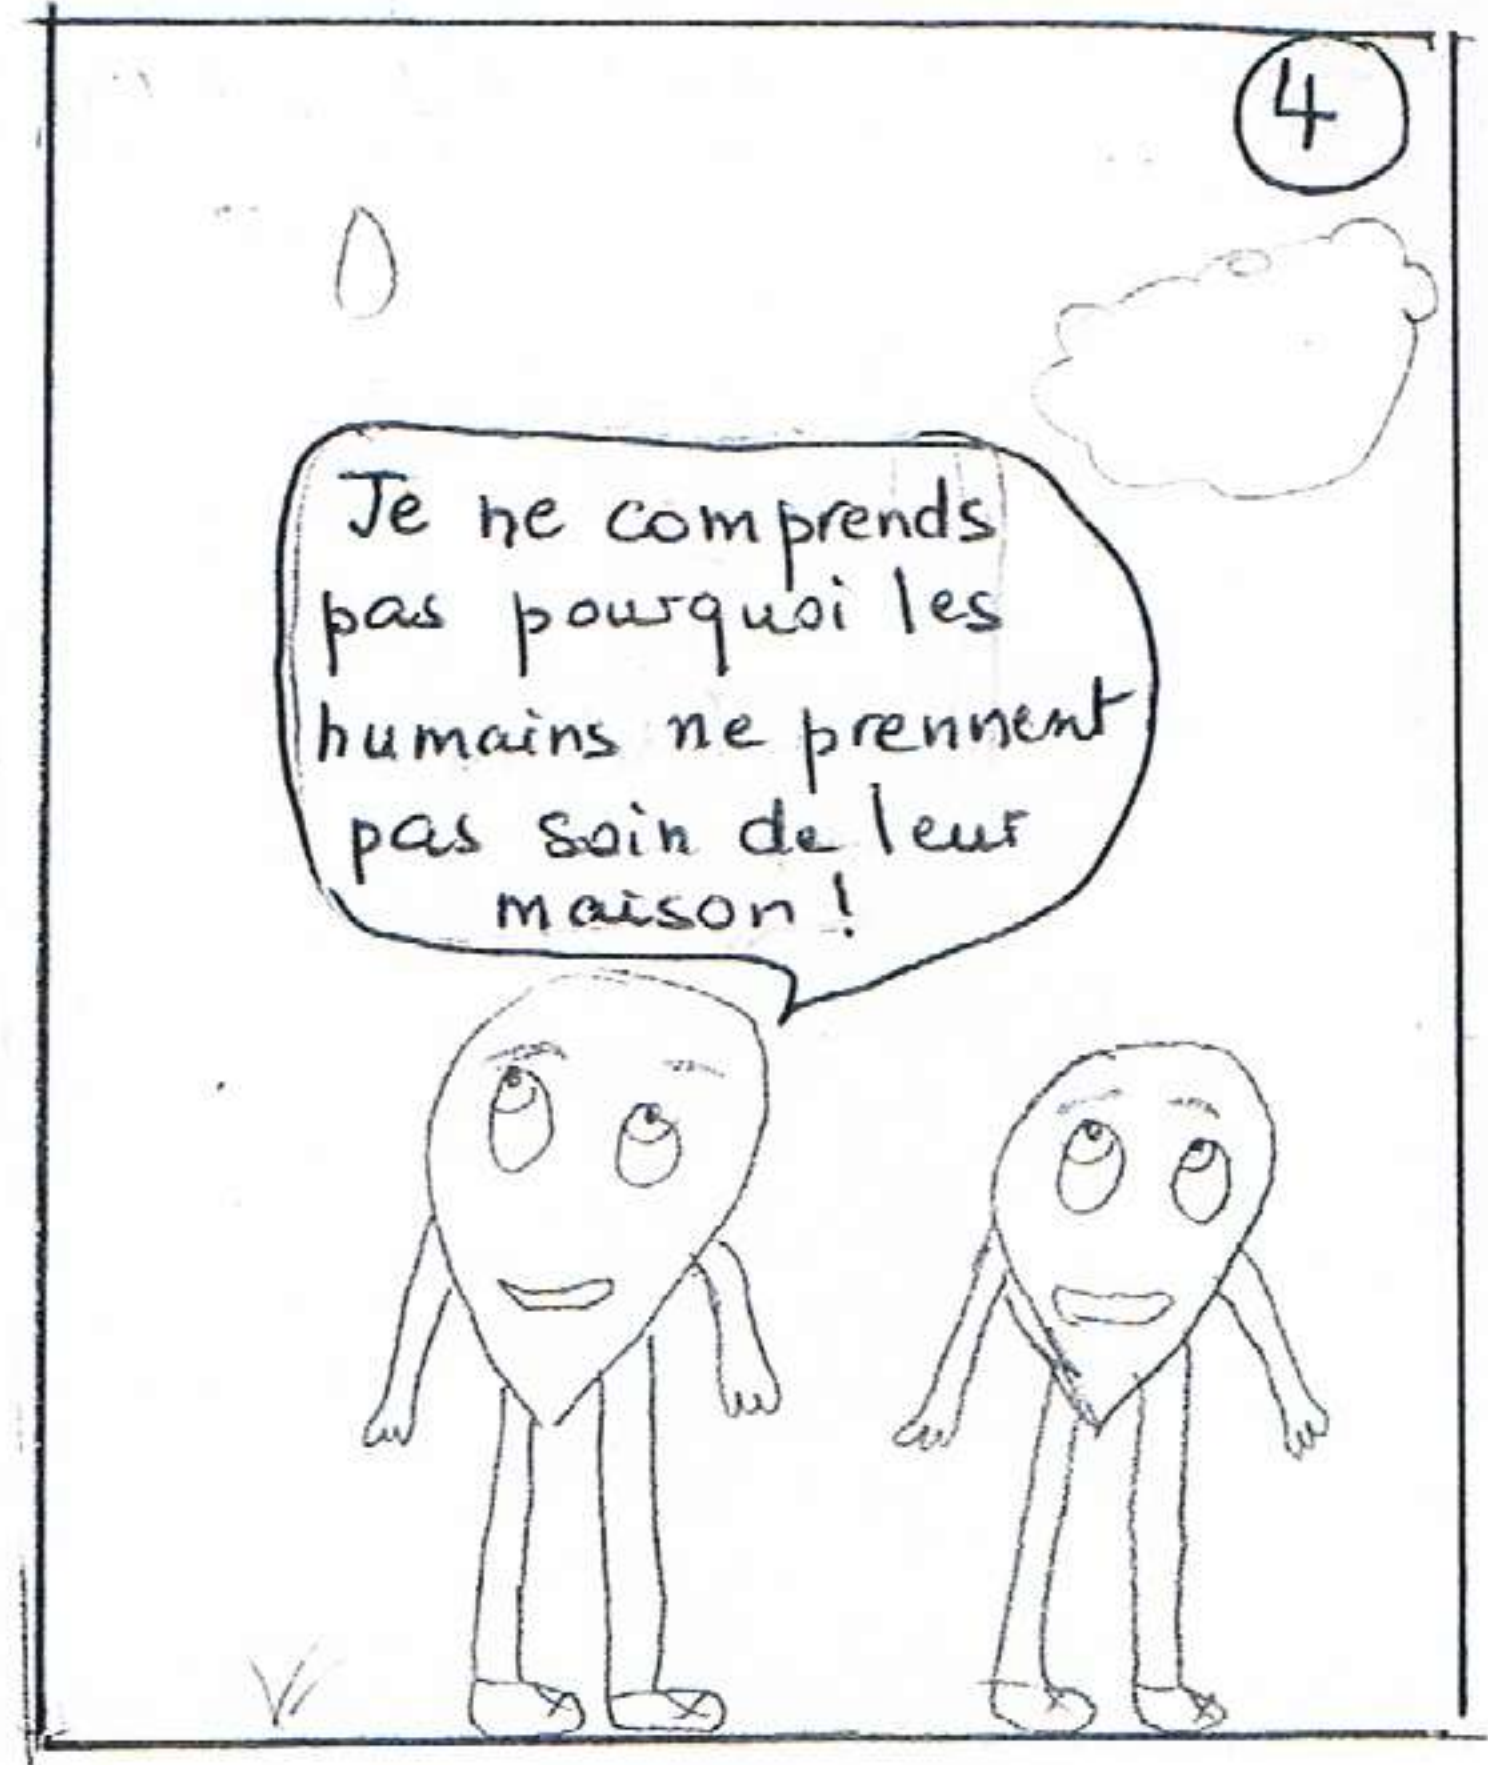 4
Je ne comprends
pas pourquoi les
humains ne prennent
pas soin de leur
maison !